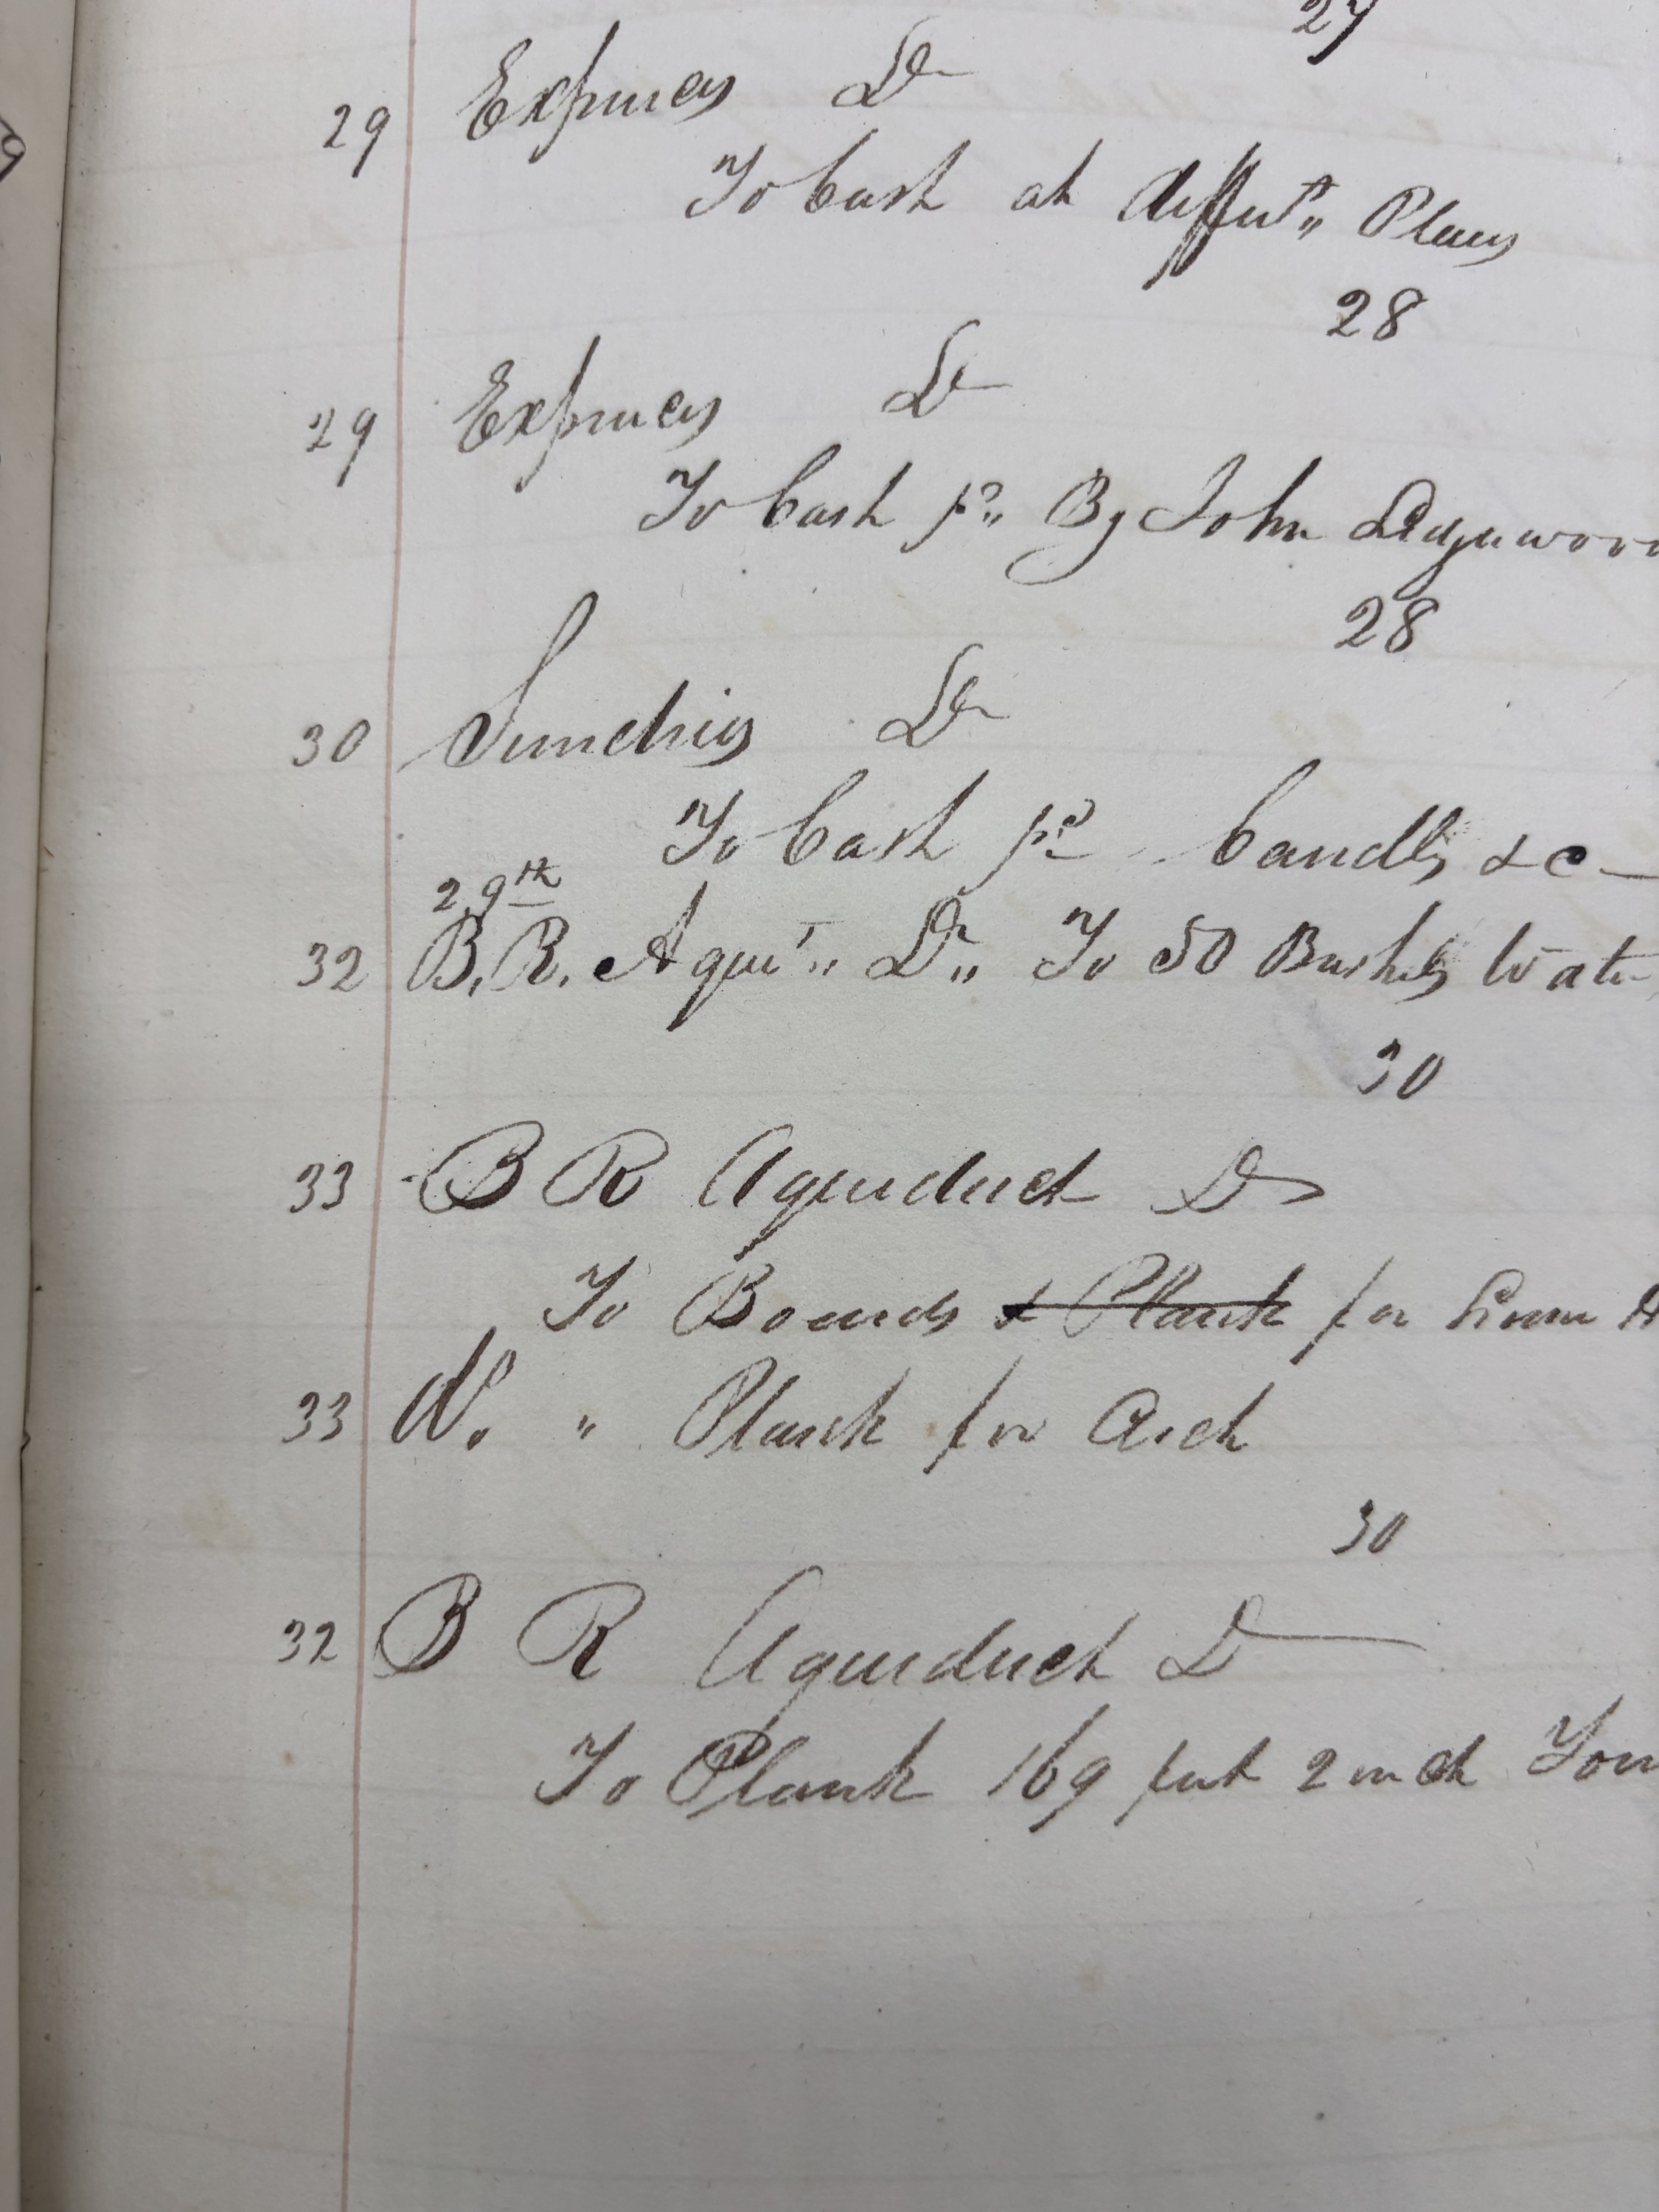 27
29 Expences Dr
To Cash at Diffnt" Places
28
29 Expences Dr
To Cash pd" By John
28
30 Sundries Dr
To Cash pd Candles &c
29th
32 B. R. Aqui'" Dr" To 50 Bushels Water
30
33 B R Aqueduct Dr
To Boards & Plank for
33 Do. " Plank for Arch
30
32 B R Aqueduct Dr
To Plank 169 feet 2 inch